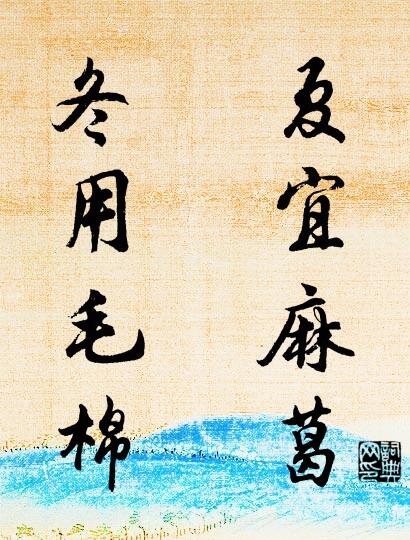 夏宜麻葛
冬用毛棉
词典网印